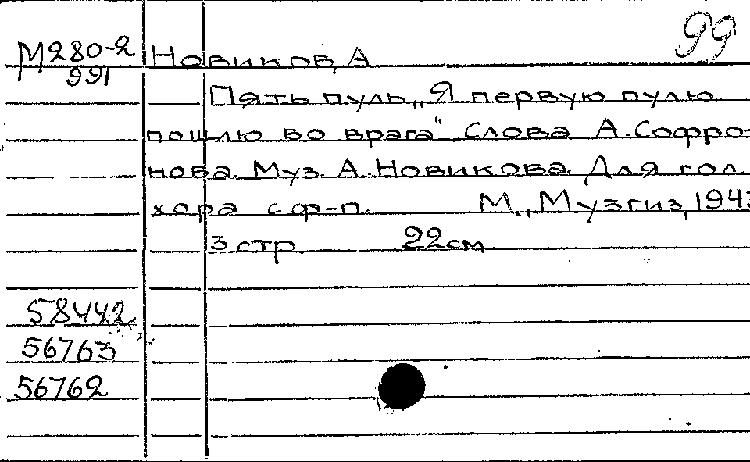 99
М280-2 Новиков, А
991
Пять пуль „Я первую пулю
пошлю во врага" Слова А.Софро-
нова. Муз. А.Новикова. Для гол.
хора с ф-п. М., Музгиз, 1943
3 стр. 22см.
58442
56763
56762